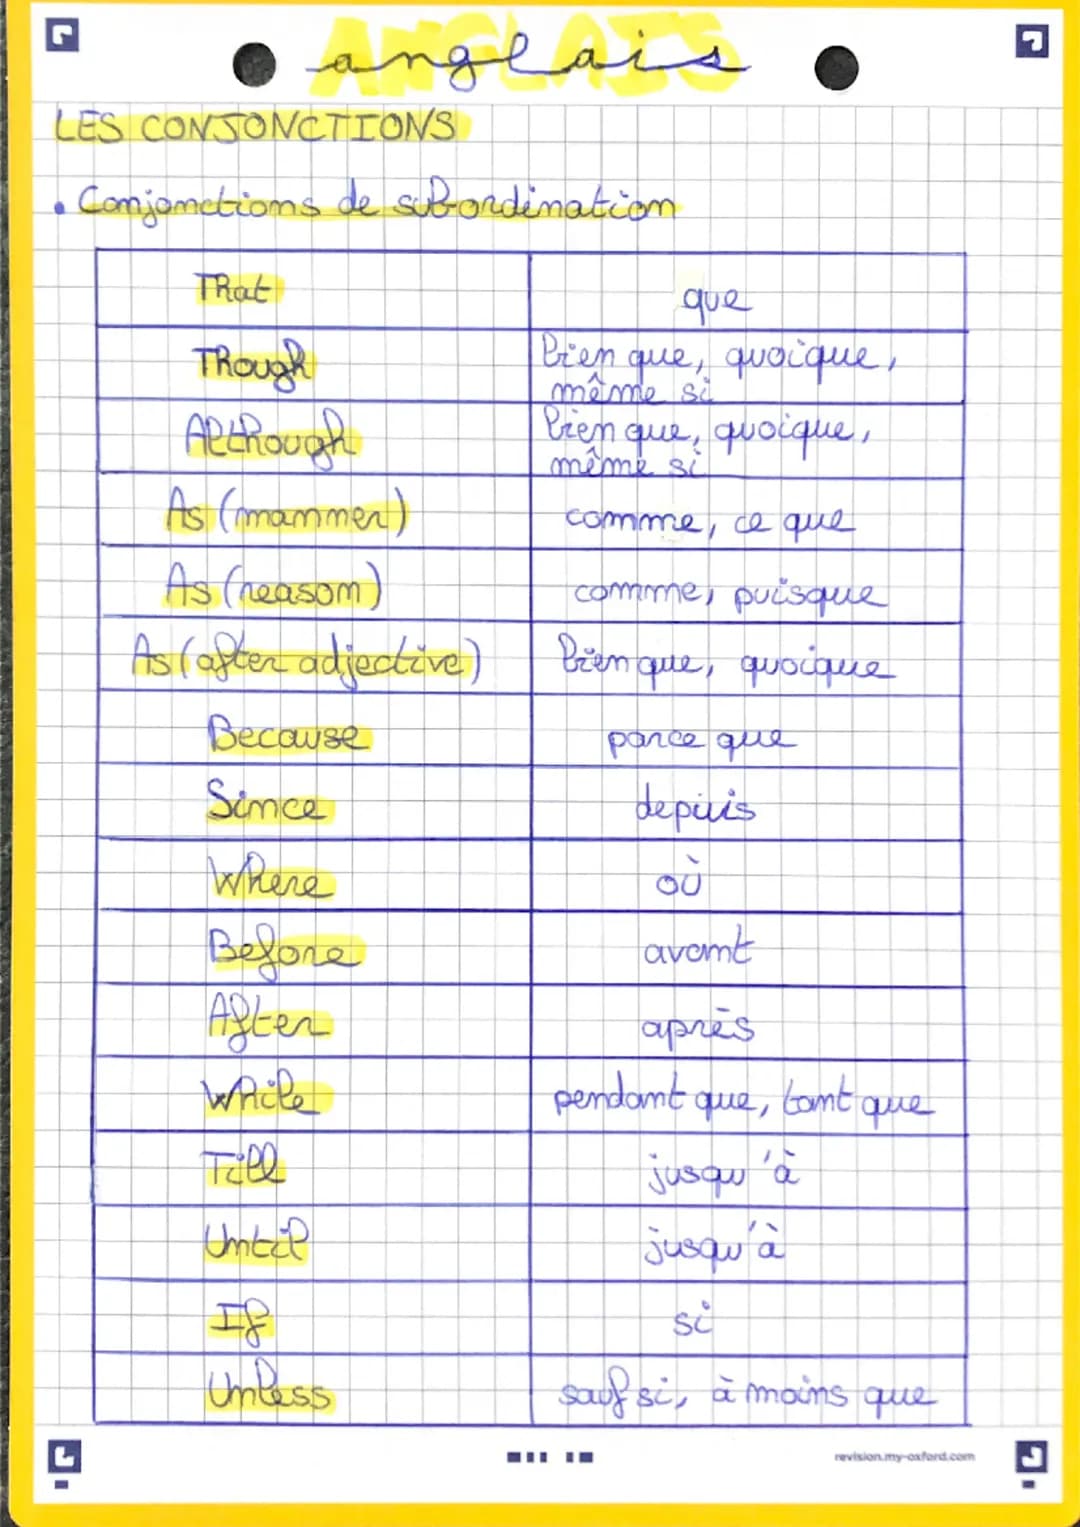 ANGLAIS
anglais
LES CONJONCTIONS
• Conjonctions de subordination
That que
Though bien que, quoique,
même si
Although bien que, quoique,
même si
As (manner) comme, ce que
As (reason) comme, puisque
As (after adjective) bien que, quoique
Because parce que
Since depuis
Where où
Before avant
After après
While pendant que, tant que
Till jusqu'à
Until jusqu'à
If si
Unless sauf si, à moins que
revision.my-oxford.com